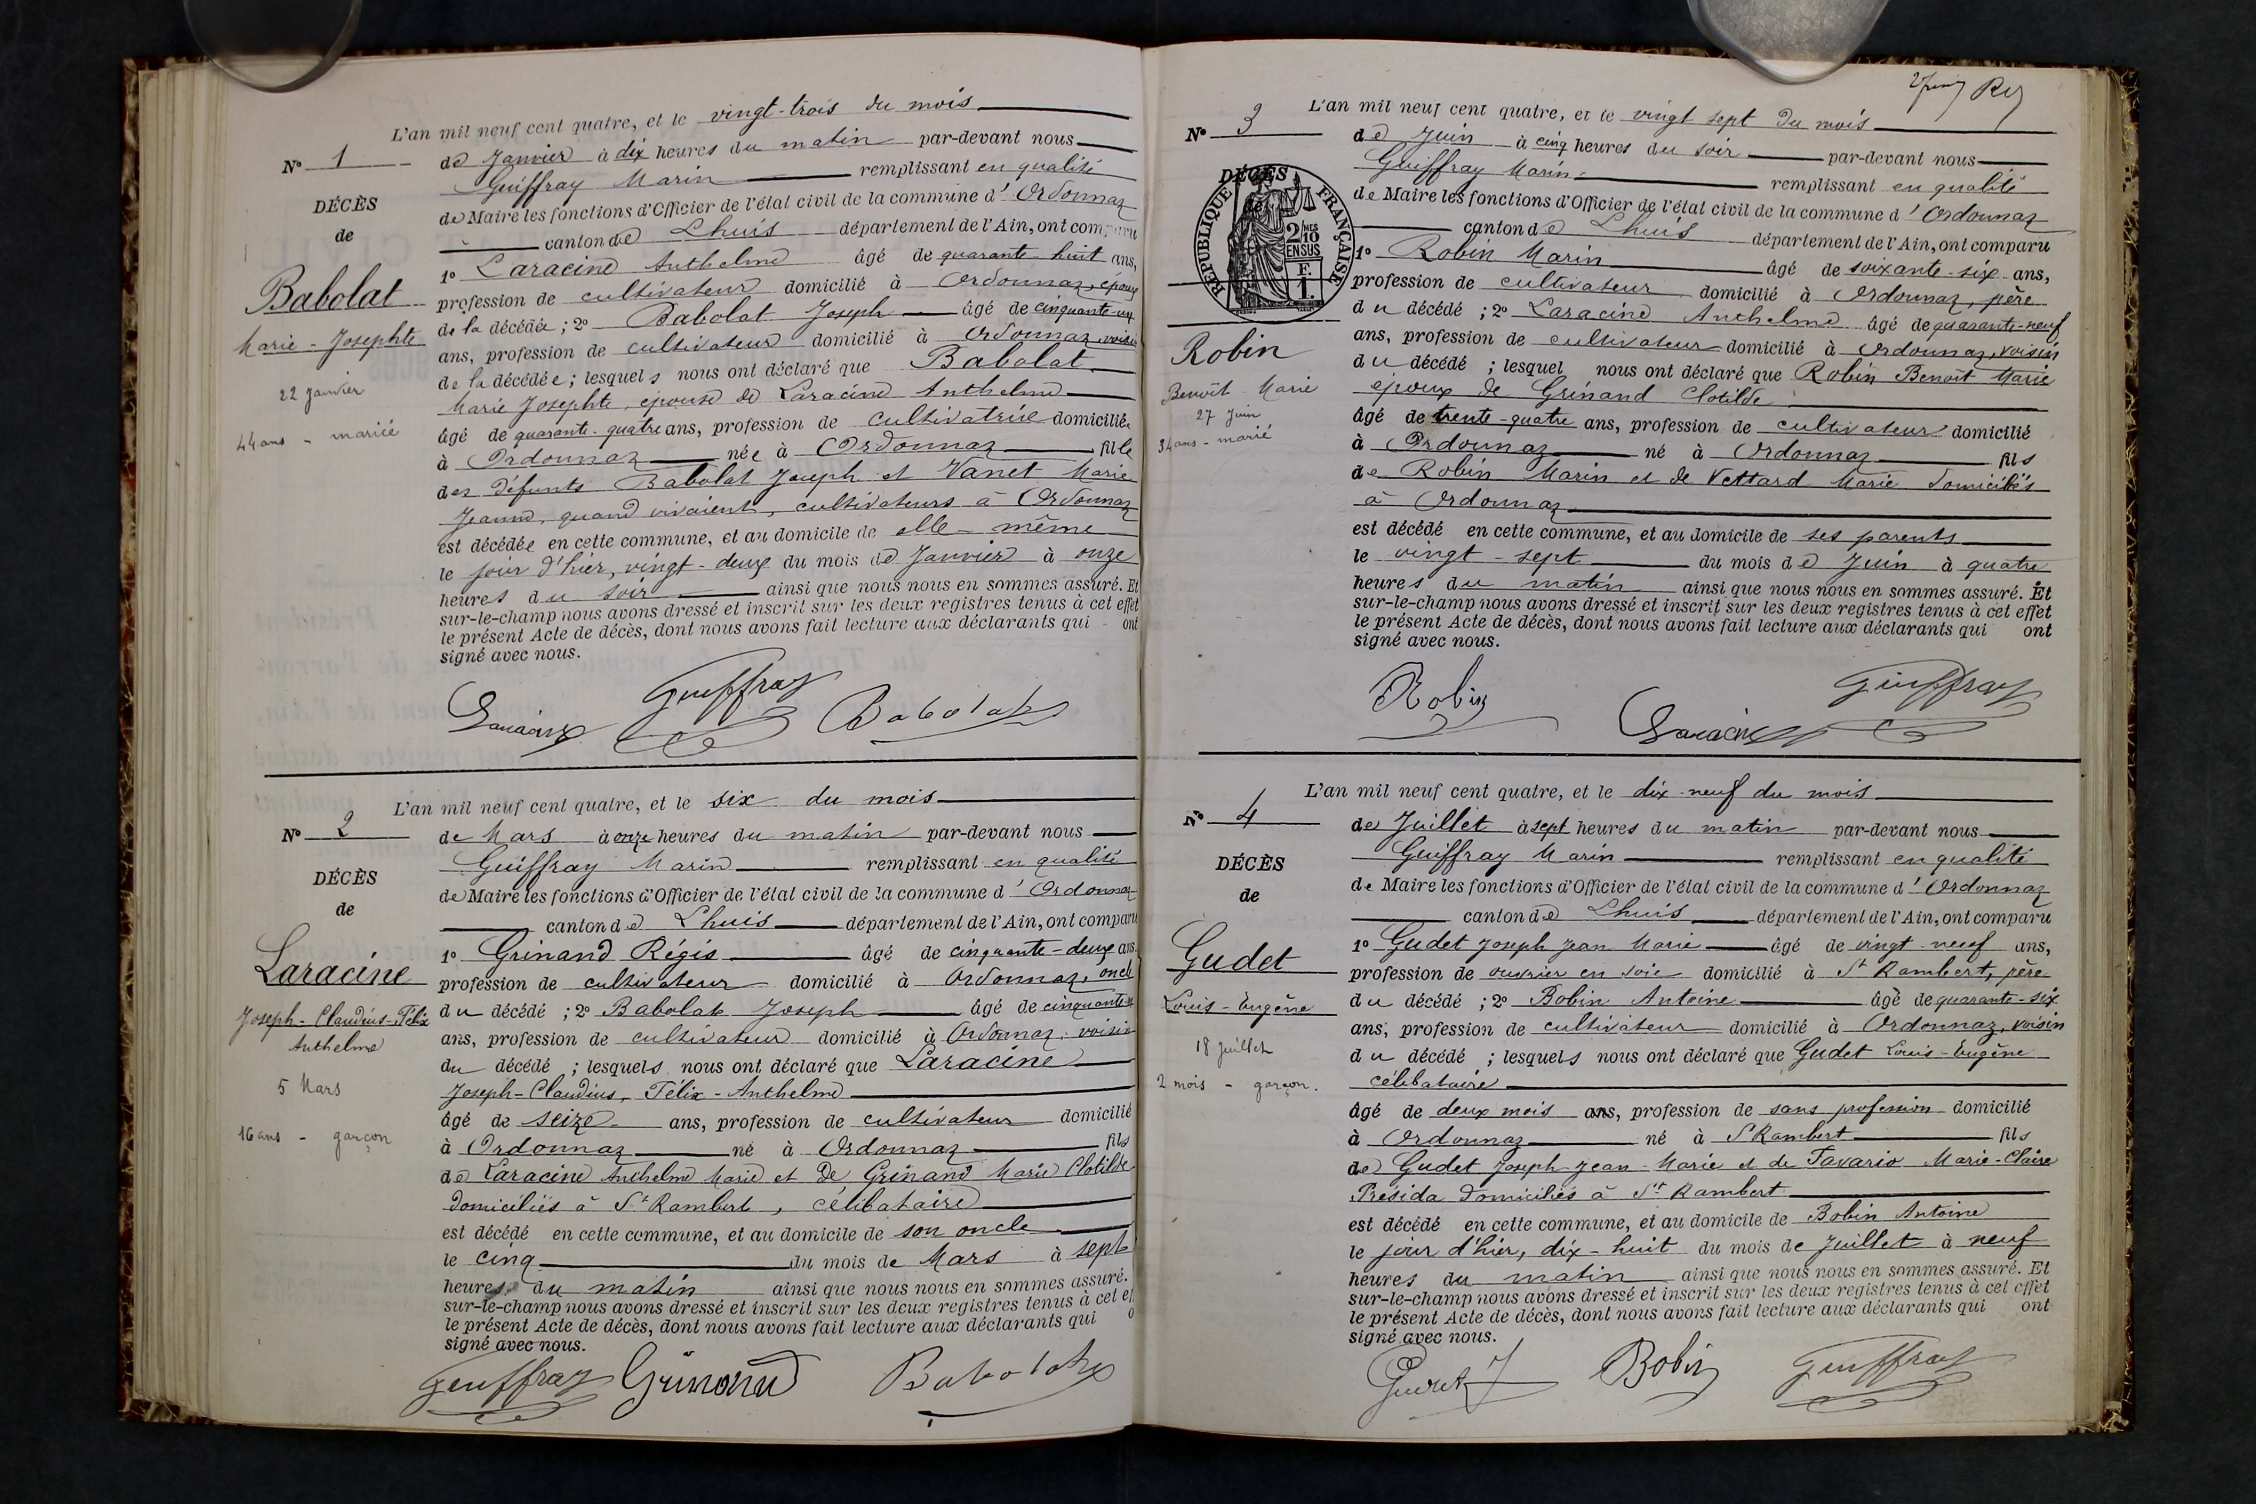 L'an mil neuf cent quatre, et le vingt-trois du mois
N° 1
de Janvier à dix heures du matin par-devant nous
Guiffray Marin remplissant en qualité
DÉCÈS
de Maire les fonctions d'Officier de l'état civil de la commune d'Ordonnaz
de
canton de Lhuis département de l'Ain, ont comparu
1° Laracine Anthelme âgé de quarante huit ans,
Babolat
profession de cultivateur domicilié à Ordonnaz, époux
de la décédée ; 2° Babolat Joseph âgé de cinquante-un
Marie-Josephte
ans, profession de cultivateur domicilié à Ordonnaz, voisin
de la décédée ; lesquels nous ont déclaré que Babolat
22 Janvier
Marie Josephte, épouse de Laracine Anthelme
44 ans - mariée
âgé de quarante-quatre ans, profession de cultivatrice domiciliée
à Ordonnaz née à Ordonnaz fille
des défunts Babolat Joseph et Vanet Marie
Jeanne, quand vivaient, cultivateurs à Ordonnaz
est décédée en cette commune, et au domicile de elle-même
le jour d'hier, vingt-deux du mois de Janvier à onze
heures du soir ainsi que nous nous en sommes assuré. Et
sur-le-champ nous avons dressé et inscrit sur les deux registres tenus à cet effet
le présent Acte de décès, dont nous avons fait lecture aux déclarants qui ont
signé avec nous.
Laracine Guiffray Babolat
L'an mil neuf cent quatre, et le six du mois
N° 2
de Mars à onze heures du matin par-devant nous
Guiffray Marin remplissant en qualité
DÉCÈS
de Maire les fonctions d'Officier de l'état civil de la commune d'Ordonnaz
de
canton de Lhuis département de l'Ain, ont comparu
1° Grinand Régis âgé de cinquante-deux ans
Laracine
profession de cultivateur domicilié à Ordonnaz, oncle
Joseph-Claudius-Félix
du décédé ; 2° Babolat Joseph âgé de cinquante-u
Anthelme
ans, profession de cultivateur domicilié à Ordonnaz, voisin
du décédé ; lesquels nous ont déclaré que Laracine
5 Mars
Joseph-Claudius-Félix-Anthelme
âgé de seize ans, profession de cultivateur domicilié
16 ans - garçon
à Ordonnaz né à Ordonnaz fils
de Laracine Anthelme Marie et de Grinand Marie Clotilde
domiciliés à St Rambert, célibataire
est décédé en cette commune, et au domicile de son oncle
le cinq du mois de Mars à sept
heures du matin ainsi que nous nous en sommes assuré.
sur-le-champ nous avons dressé et inscrit sur les deux registres tenus à cet ef
le présent Acte de décès, dont nous avons fait lecture aux déclarants qui o
signé avec nous.
Guiffray Grinand Babolat
L'an mil neuf cent quatre, et le vingt sept du mois
N° 3
de Juin à cinq heures du soir par-devant nous
Guiffray Marin remplissant en qualité
DÉCÈS
de Maire les fonctions d'Officier de l'état civil de la commune d'Ordonnaz
RÉPUBLIQUE FRANÇAISE
2/10
EN SUS
F.
1.
canton de Lhuis département de l'Ain, ont comparu
1° Robin Marin âgé de soixante-six ans,
profession de cultivateur domicilié à Ordonnaz, père
du décédé ; 2° Laracine Anthelme âgé de quarante-neuf
Robin
ans, profession de cultivateur domicilié à Ordonnaz, voisin
du décédé ; lesquel nous ont déclaré que Robin Benoît Marie
Benoît Marie
époux de Grinand Clotilde
27 Juin
âgé de trente-quatre ans, profession de cultivateur domicilié
34 ans - marié
à Ordonnaz né à Ordonnaz fils
de Robin Marin et de Vettard Marie domiciliés
à Ordonnaz
est décédé en cette commune, et au domicile de ses parents
le vingt-sept du mois de Juin à quatre
heures du matin ainsi que nous nous en sommes assuré. Et
sur-le-champ nous avons dressé et inscrit sur les deux registres tenus à cet effet
le présent Acte de décès, dont nous avons fait lecture aux déclarants qui ont
signé avec nous.
Robin Laracine Guiffray
L'an mil neuf cent quatre, et le dix-neuf du mois
N° 4
de Juillet à sept heures du matin par-devant nous
Guiffray Marin remplissant en qualité
DÉCÈS
de Maire les fonctions d'Officier de l'état civil de la commune d'Ordonnaz
de
canton de Lhuis département de l'Ain, ont comparu
1° Gudet Joseph Jean Marie âgé de vingt-neuf ans,
Gudet
profession de ouvrier en soie domicilié à St Rambert, père
Louis-Eugène
du décédé ; 2° Bobin Antoine âgé de quarante-six
ans, profession de cultivateur domicilié à Ordonnaz, voisin
18 Juillet
du décédé ; lesquels nous ont déclaré que Gudet Louis-Eugène
2 mois - garçon.
célibataire
âgé de deux mois ans, profession de sans profession domicilié
à Ordonnaz né à St Rambert fils
de Gudet Joseph-Jean-Marie et de Tavario Marie-Claire
Présida domiciliés à St Rambert
est décédé en cette commune, et au domicile de Bobin Antoine
le jour d'hier, dix-huit du mois de Juillet à neuf
heures du matin ainsi que nous nous en sommes assuré. Et
sur-le-champ nous avons dressé et inscrit sur les deux registres tenus à cet effet
le présent Acte de décès, dont nous avons fait lecture aux déclarants qui ont
signé avec nous.
Bobin Guiffray